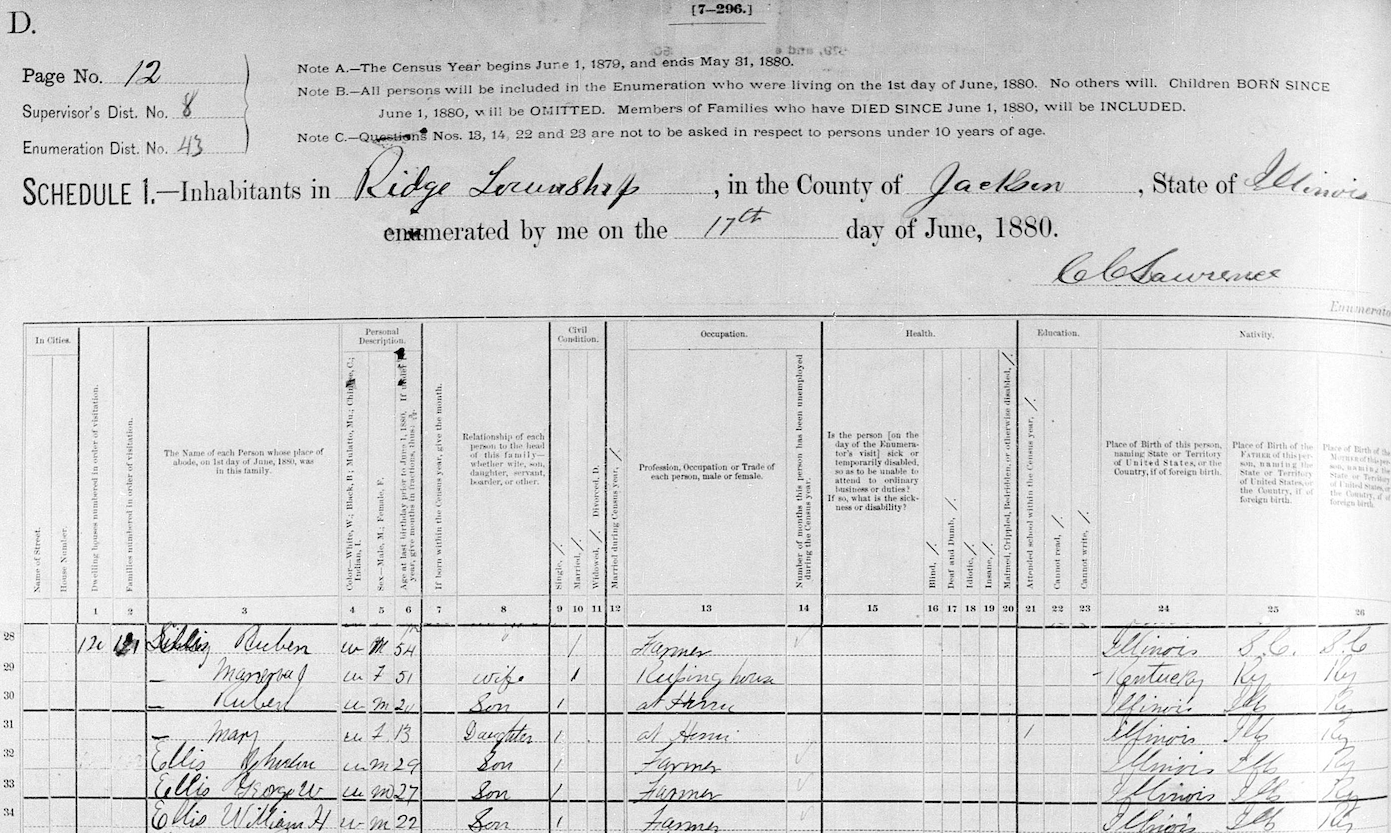 [7-296.]
D.
Page No. 12
Supervisor's Dist. No. 8
Enumeration Dist. No. 43
Note A.—The Census Year begins June 1, 1879, and ends May 31, 1880.
Note B.—All persons will be included in the Enumeration who were living on the 1st day of June, 1880. No others will. Children BORN SINCE
June 1, 1880, will be OMITTED. Members of Families who have DIED SINCE June 1, 1880, will be INCLUDED.
Note C.—Questions Nos. 13, 14, 22 and 23 are not to be asked in respect to persons under 10 years of age.
SCHEDULE 1.—Inhabitants in Ridge Township, in the County of Jackson, State of Illinois
enumerated by me on the 17th day of June, 1880.
C C Lawrence
Enumerato
In Cities.
Name of Street.
House Number.
Dwelling houses numbered in order of visitation.
Families numbered in order of visitation.
The Name of each Person whose place of
abode, on 1st day of June, 1880, was
in this family.
Personal
Description.
Color—White, W.; Black, B; Mulatto, Mu.; Chinese, C.;
Indian, I.
Sex—Male, M.; Female, F.
Age at last birthday prior to June 1, 1880. If under 1
year, give months in fractions, thus:
If born within the Census year, give the month.
Relationship of each
person to the head
of this family—
whether wife, son,
daughter, servant,
boarder, or other.
Civil
Condition.
Single, /.
Married, /.
Widowed, /. Divorced, D.
Married during Census year, /.
Occupation.
Profession, Occupation or Trade of
each person, male or female.
Number of months this person has been unemployed
during the Census year.
Health.
Is the person [on the
day of the Enumera-
tor's visit] sick or
temporarily disabled,
so as to be unable to
attend to ordinary
business or duties?
If so, what is the sick-
ness or disability?
Blind, /.
Deaf and Dumb, /.
Idiotic, /.
Insane, /.
Maimed, Crippled, Bedridden, or otherwise disabled, /.
Education.
Attended school within the Census year, /.
Cannot read, /.
Cannot write, /.
Nativity.
Place of Birth of this person,
naming State or Territory
of United States, or the
Country, if of foreign birth.
Place of Birth of the
FATHER of this per-
son, naming the
State or Territory
of United States, or
the Country, if of
foreign birth.
Place of Birth of the
MOTHER of this per-
son, naming the
State or Territory
of United States, or
the Country, if of
foreign birth.
1 2 3 4 5 6 7 8 9 10 11 12 13 14 15 16 17 18 19 20 21 22 23 24 25 26
28 120 121 Ruben W M 54 / Farmer Illinois S.C. S C
29 — W F 51 wife / Keeping house Kentucky Ky Ky
30 — Ruben W M Son / at Home Illinois Ills Ky
31 — Mary W F 13 Daughter / at Home / Illinois Ills Ky
32 Ellis W M 29 Son / Farmer Illinois Ills Ky
33 Ellis George W W M 27 Son / Farmer Illinois Ills Ky
34 Ellis William H W M 22 Son / Farmer Illinois Ills Ky